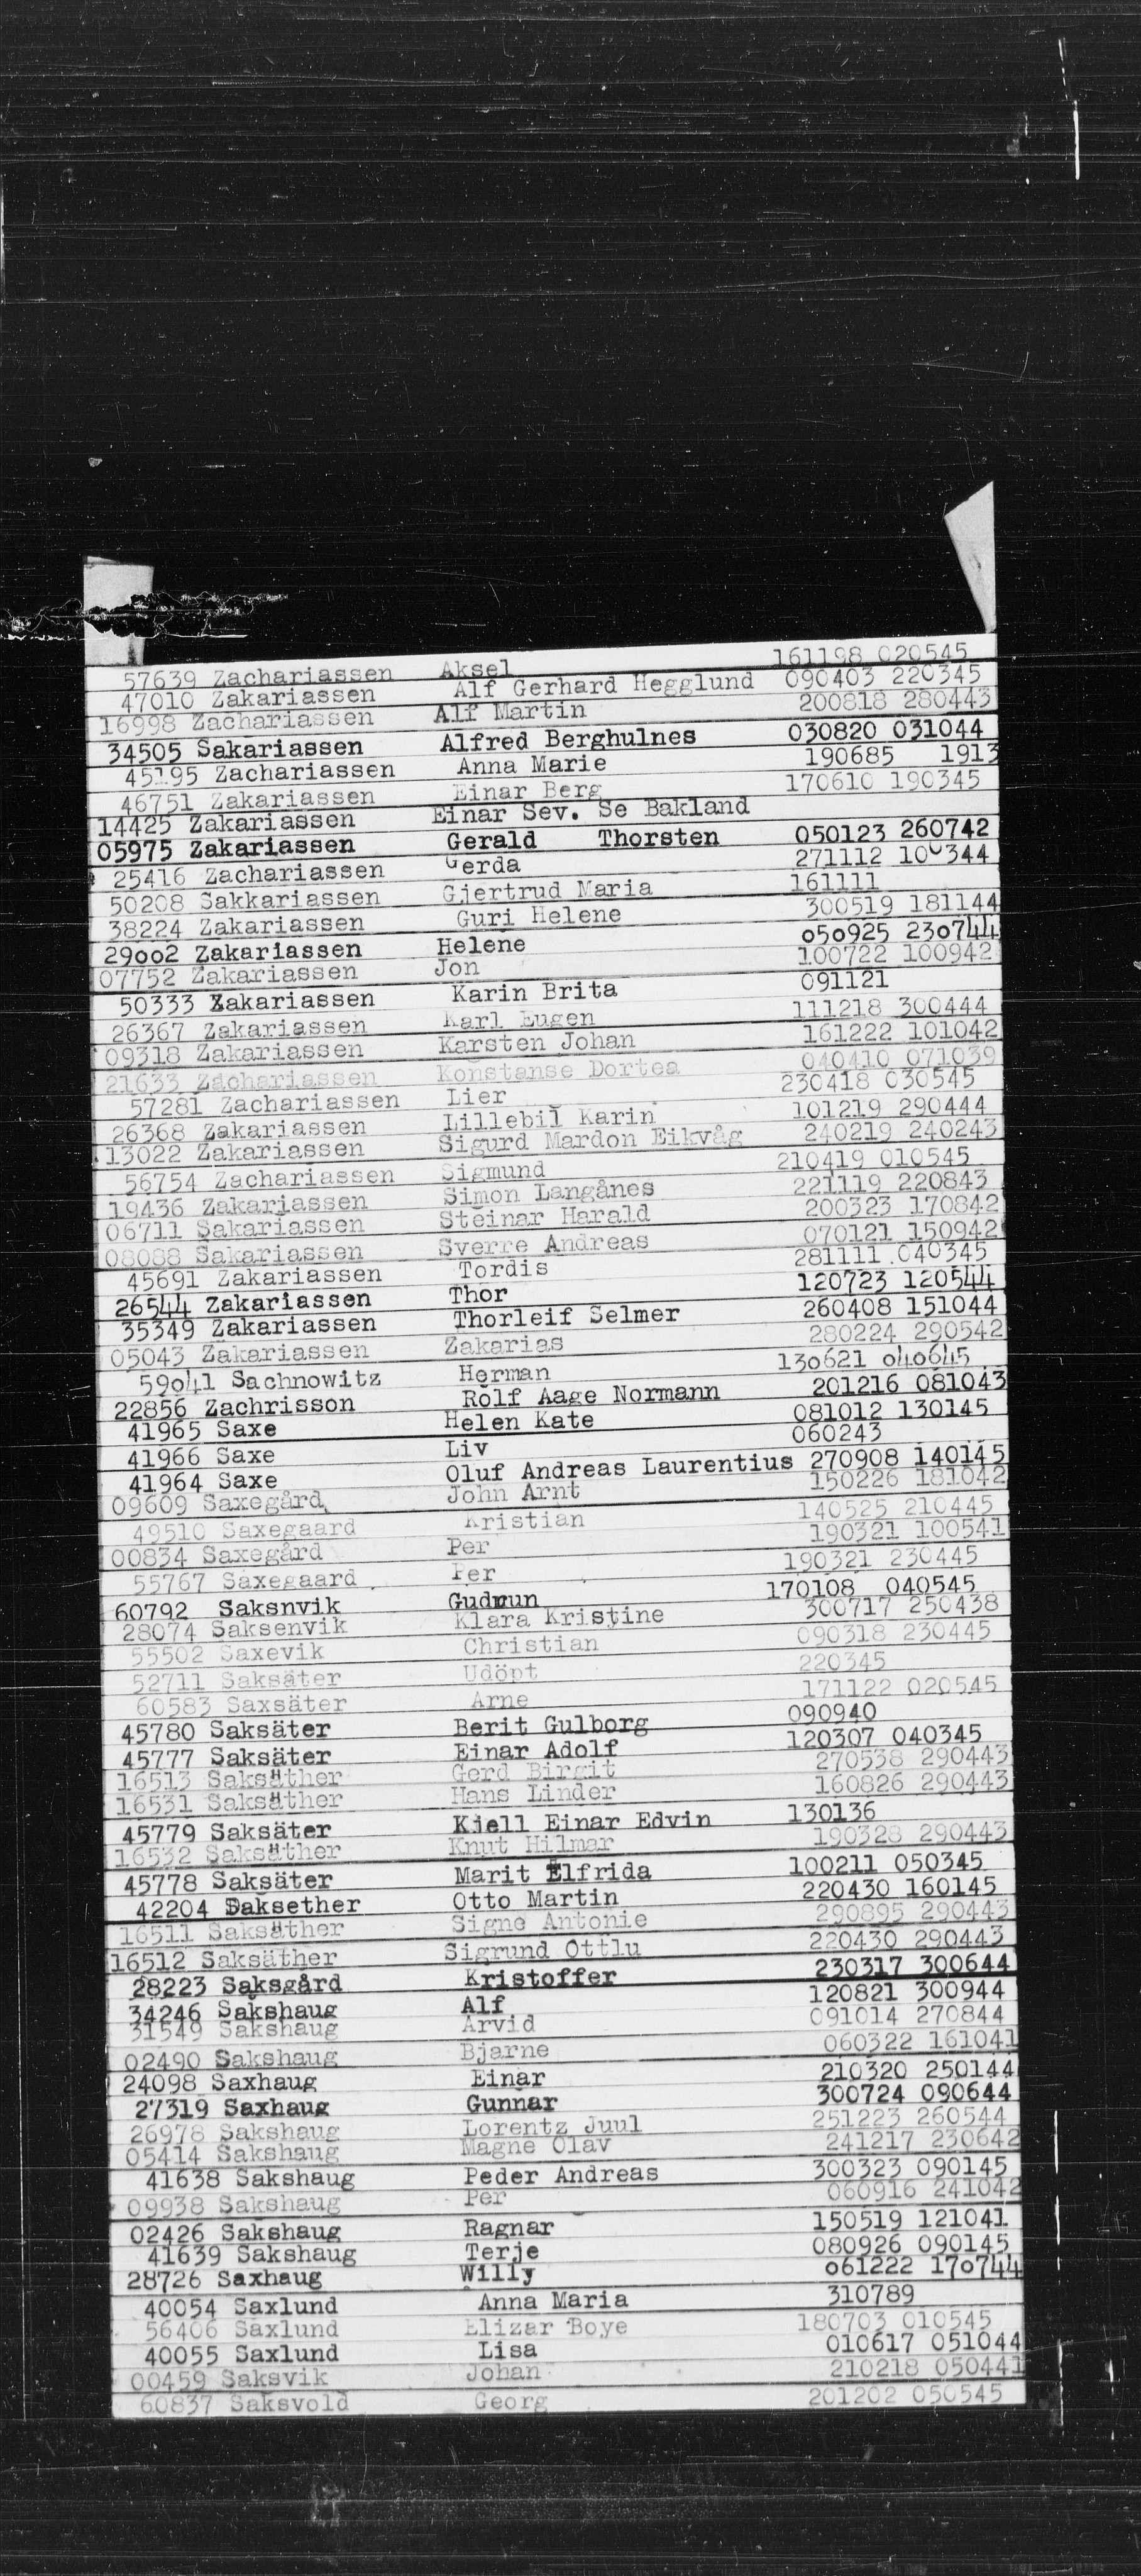 57639 Zachariassen Aksel 161198 020545
47010 Zakariassen Alf Gerhard Hegglund 090403 220345
16998 Zachariassen Alf Martin 200818 280443
34505 Sakariassen Alfred Berghulnes 030820 031044
45195 Zachariassen Anna Marie 190685 1913
46751 Zakariassen Einar Berg 170610 190345
14425 Zakariassen Einar Sev. Se Bakland
05975 Zakariassen Gerald Thorsten 050123 260742
25416 Zachariassen Gerda 271112 100344
50208 Sakkariassen Gjertrud Maria 161111
38224 Zakariassen Guri Helene 300519 181144
29002 Zakariassen Helene 050925 230744
07752 Zakariassen Jon 100722 100942
50333 Zakariassen Karin Brita 091121
26367 Zakariassen Karl Eugen 111218 300444
09318 Zakariassen Karsten Johan 161222 101042
21633 Zachariassen Konstanse Dortea 040410 071039
57281 Zachariassen Lier 230418 030545
26368 Zakariassen Lillebil Karin 101219 290444
13022 Zakariassen Sigurd Mardon Eikvåg 240219 240243
56754 Zachariassen Sigmund 210419 010545
19436 Zakariassen Simon Langånes 221119 220843
06711 Sakariassen Steinar Harald 200323 170842
08088 Sakariassen Sverre Andreas 070121 150942
45691 Zakariassen Tordis 281111 040345
26544 Zakariassen Thor 120723 120544
35349 Zakariassen Thorleif Selmer 260408 151044
05043 Zakariassen Zakarias 280224 290542
59041 Sachnowitz Herman 130621 040645
22856 Zachrisson Rolf Aage Normann 201216 081043
41965 Saxe Helen Kate 081012 130145
41966 Saxe Liv 060243
41964 Saxe Oluf Andreas Laurentius 270908 140145
09609 Saxegård John Arnt 150226 181042
49510 Saxegaard Kristian 140525 210445
00834 Saxegård Per 190321 100541
55767 Saxegaard Per 190321 230445
60792 Saksnvik Gudmun 170108 040545
28074 Saksenvik Klara Kristine 300717 250438
55502 Saxevik Christian 090318 230445
52711 Saksäter Udöpt 220345
60583 Saxsäter Arne 171122 020545
45780 Saksäter Berit Gulborg 090940
45777 Saksäter Einar Adolf 120307 040345
16513 Saksäther Gerd Birgit 270538 290443
16531 Saksäther Hans Linder 160826 290443
45779 Saksäter Kjell Einar Edvin 130136
16532 Saksäther Knut Hilmar 190328 290443
45778 Saksäter Marit Elfrida 100211 050345
42204 Saksether Otto Martin 220430 160145
16511 Saksäther Signe Antonie 290895 290443
16512 Saksäther Sigrund Ottlu 220430 290443
28223 Saksgård Kristoffer 230317 300644
34246 Sakshaug Alf 120821 300944
31549 Sakshaug Arvid 091014 270844
02490 Sakshaug Bjarne 060322 161041
24098 Saxhaug Einar 210320 250144
27319 Saxhaug Gunnar 300724 090644
26978 Sakshaug Lorentz Juul 251223 260544
05414 Sakshaug Magne Olav 241217 230642
41638 Sakshaug Peder Andreas 300323 090145
09938 Sakshaug Per 060916 241042
02426 Sakshaug Ragnar 150519 121041
41639 Sakshaug Terje 080926 090145
28726 Saxhaug Willy 061222 170744
40054 Saxlund Anna Maria 310789
56406 Saxlund Elizar Boye 180703 010545
40055 Saxlund Lisa 010617 051044
00459 Saksvik Johan 210218 050441
60837 Saksvold Georg 201202 050545